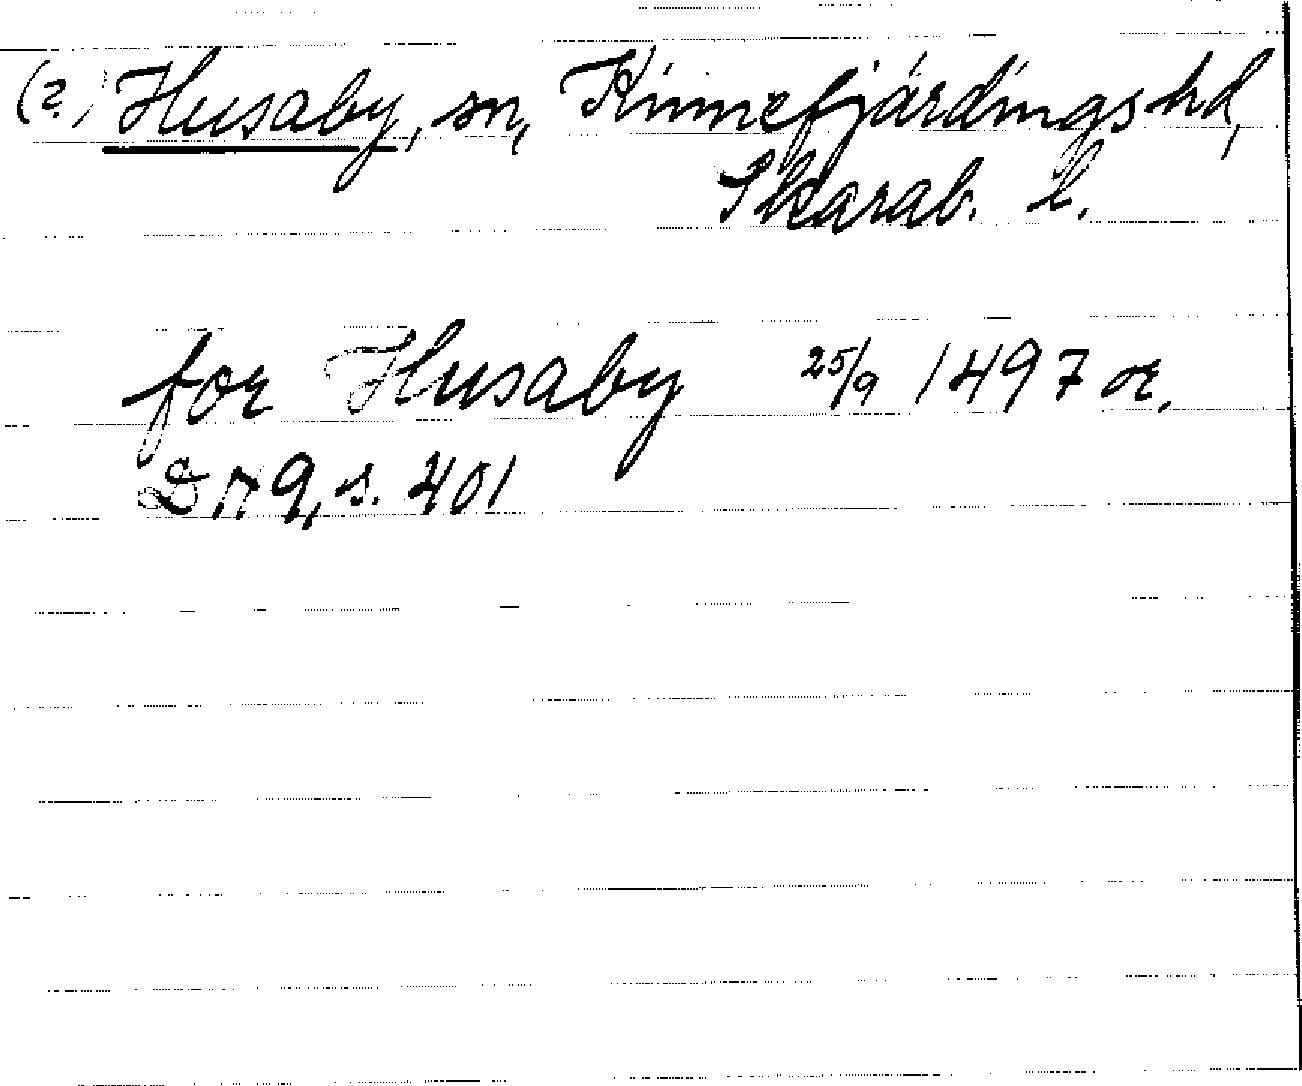 (?) Husaby, sn, Kinnefjärdings hd,
Skarab. l.
for Husaby 25/9 1497 or.
DN 9, s. 401